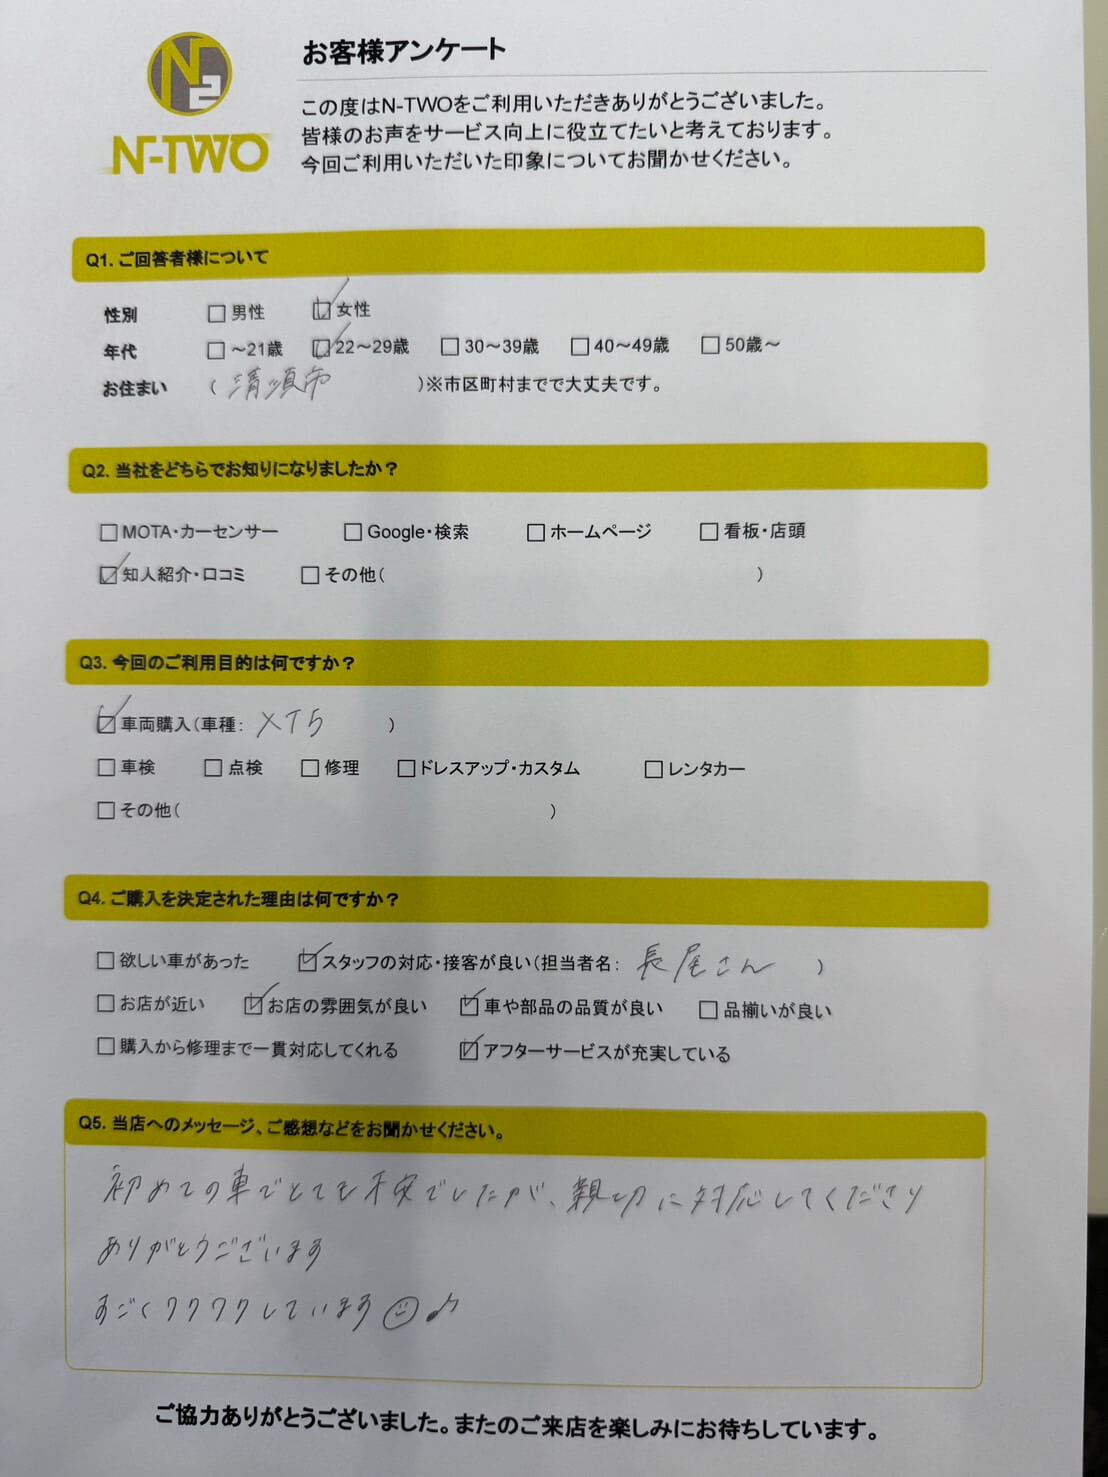 N2
N-TWO
お客様アンケート
この度はN-TWOをご利用いただきありがとうございました。
皆様のお声をサービス向上に役立てたいと考えております。
今回ご利用いただいた印象についてお聞かせください。
Q1. ご回答者様について
性別 □男性 ☑女性
年代 □～21歳 ☑22～29歳 □30～39歳 □40～49歳 □50歳～
お住まい (清須市)※市区町村までで大丈夫です。
Q2. 当社をどちらでお知りになりましたか？
□MOTA・カーセンサー □Google・検索 □ホームページ □看板・店頭
☑知人紹介・口コミ □その他( )
Q3. 今回のご利用目的は何ですか？
☑車両購入(車種: XT5 )
□車検 □点検 □修理 □ドレスアップ・カスタム □レンタカー
□その他( )
Q4. ご購入を決定された理由は何ですか？
□欲しい車があった ☑スタッフの対応・接客が良い(担当者名: 長尾さん )
□お店が近い ☑お店の雰囲気が良い ☑車や部品の品質が良い □品揃いが良い
□購入から修理まで一貫対応してくれる ☑アフターサービスが充実している
Q5. 当店へのメッセージ、ご感想などをお聞かせください。
初めての車でとても不安でしたが、親切に対応してくださり
ありがとうございます
すごくワクワクしています☺♪
ご協力ありがとうございました。またのご来店を楽しみにお待ちしています。